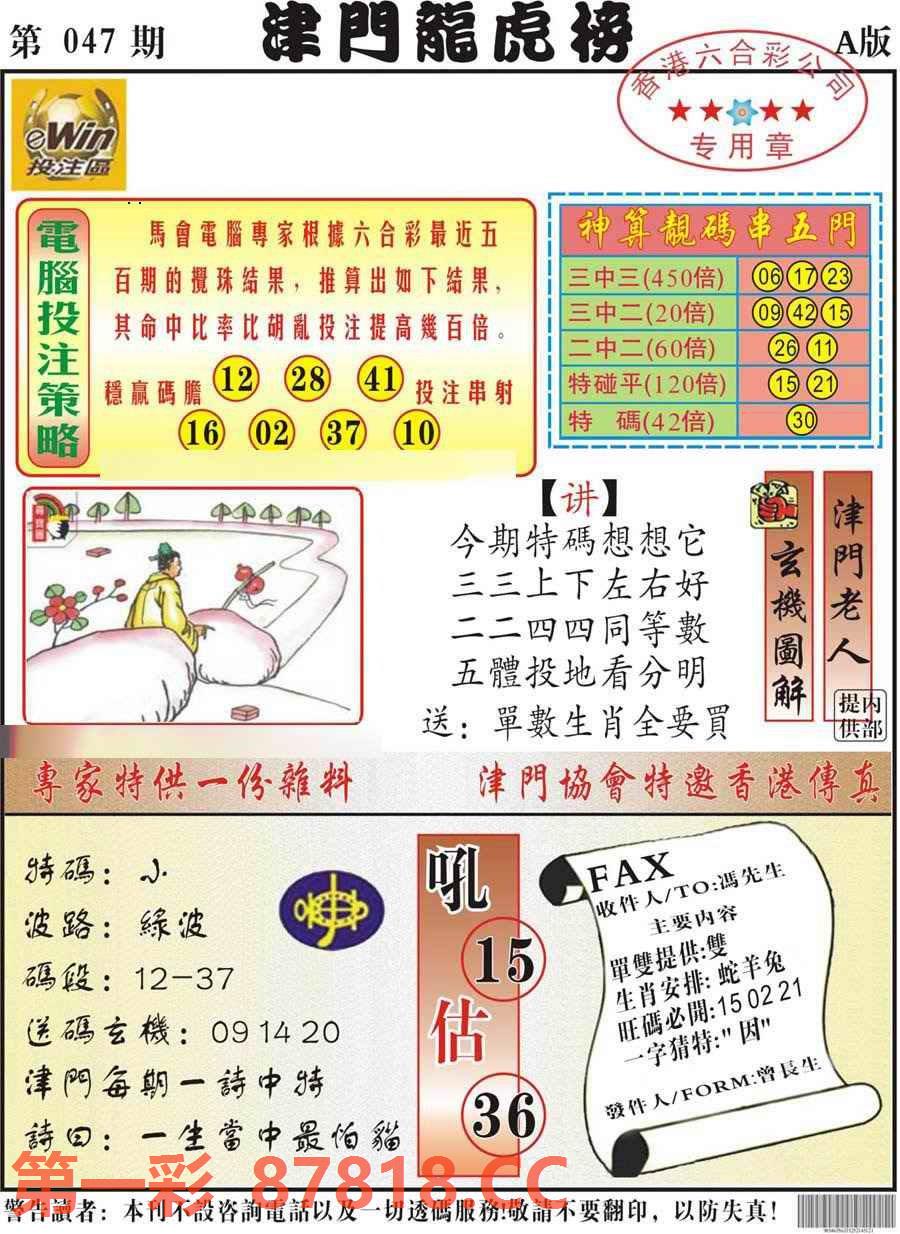 第 047 期
津門龍虎榜
A版
香港六合彩公司
专用章
eWin
投注區
電腦投注策略
馬會電腦專家根據六合彩最近五
百期的攪珠結果，推算出如下結果，
其命中比率比胡亂投注提高幾百倍。
穩贏碼膽 12 28 41 投注串射
16 02 37 10
神算靚碼串五門
三中三(450倍) 06 17 23
三中二(20倍) 09 42 15
二中二(60倍) 26 11
特碰平(120倍) 15 21
特 碼(42倍) 30
尋寶圖
【讲】
今期特碼想想它
三三上下左右好
二二四四同等數
五體投地看分明
送：單數生肖全要買
玄機圖解
津門老人
内部提供
專家特供一份雜料
津門協會特邀香港傳真
特碼：小
波路：綠波
碼段：12-37
送碼玄機：09 14 20
津門每期一詩中特
詩曰：一生當中最怕貓
吼
15
估
36
FAX
收件人/TO:馮先生
主要内容
單雙提供:雙
生肖安排: 蛇羊兔
旺碼必開:15 02 21
一字猜特:"因"
發件人/FORM:曾長生
第一彩 87818.CC
警告讀者：本刊不設咨詢電話以及一切透碼服務!敬請不要翻印，以防失真!